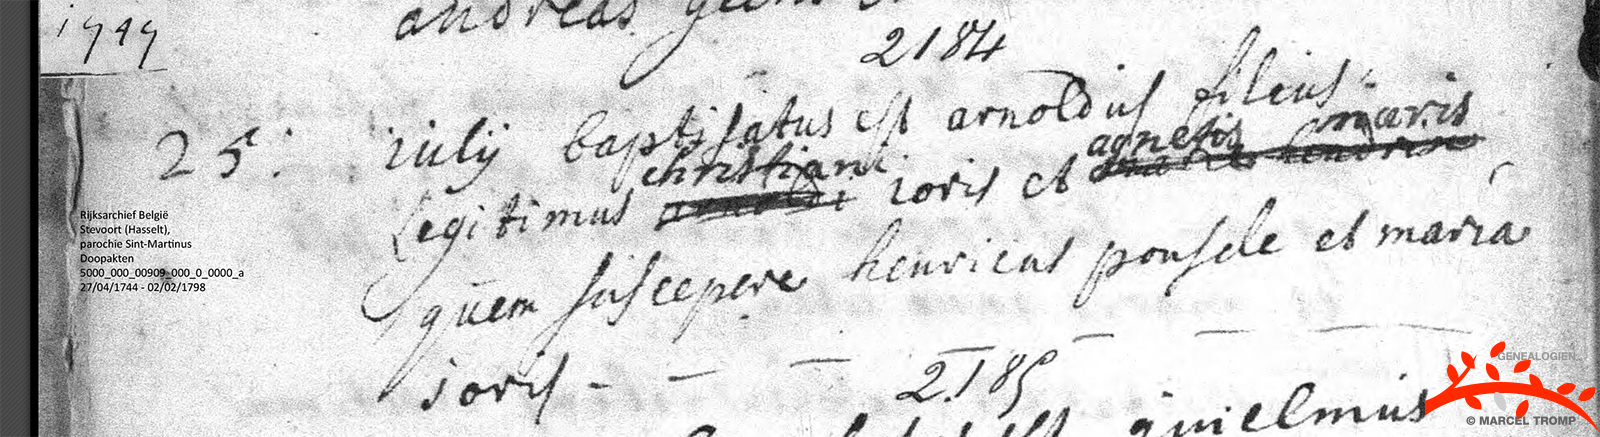 1747
andreas
2184
25: iulij baptisatus est arnoldus filius
christiani agnetis maris
legitimus arnoldi ioris et hendrix
quem suscepere henricus ponsele et maria
ioris - - - -
2185
guielmus
Rijksarchief België
Stevoort (Hasselt),
parochie Sint-Martinus
Doopakten
5000_000_00909_000_0_0000_a
27/04/1744 - 02/02/1798
GENEALOGIEN
© MARCEL TROMP